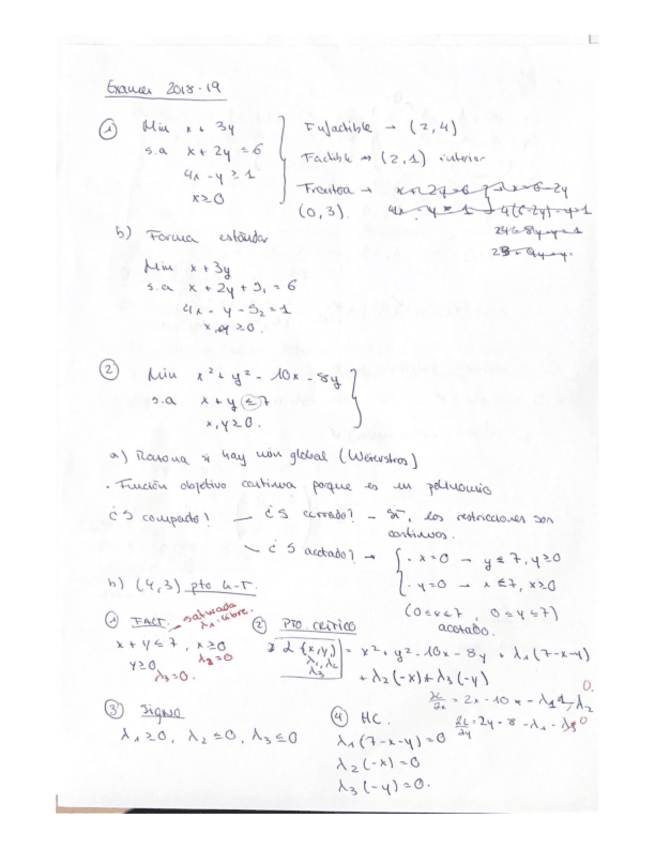 Examen 2018-19
① Min x + 3y
s.a x + 2y = 6
4x - y ≥ 1
x ≥ 0
Infactible → (2,4)
Factible → (2,1) interior
Frontera →
(0,3).
b) Forma estándar
Min x + 3y
s.a x + 2y + S₁ = 6
4x - y - S₂ = 1
x, y ≥ 0.
② Min x² + y² - 10x - 8y
s.a x + y ≤ 7
x, y ≥ 0.
a) Razona si hay mín global (Weierstrass)
. Función objetivo continua porque es un polinomio
¿S compacto? — ¿S cerrado? — SÍ, las restricciones son
continuas.
¿S acotado? → . x=0 → y ≤ 7, y ≥ 0
. y=0 → x ≤ 7, x ≥ 0
(0≤x≤7, 0≤y≤7)
acotado.
b) (4,3) pto K-T.
① FACT. → saturada
λ₁ libre.
x + y ≤ 7, x ≥ 0
λ₂=0
y ≥ 0
λ₃=0.
② PTO. CRÍTICO
L(x,y) = x² + y² - 10x - 8y + λ₁(7-x-y)
λ₁, λ₂
λ₃
+ λ₂(-x) + λ₃(-y)
0.
∂L/∂x = 2x - 10 - λ₁ - λ₂
∂L/∂y = 2y - 8 - λ₁ - λ₃ 0
③ Signo
λ₁ ≥ 0, λ₂ ≤ 0, λ₃ ≤ 0
④ HC.
λ₁(7-x-y)=0
λ₂(-x)=0
λ₃(-y)=0.